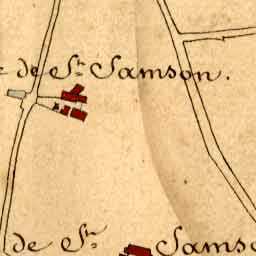 de St. Samson.
de Ste. Samso